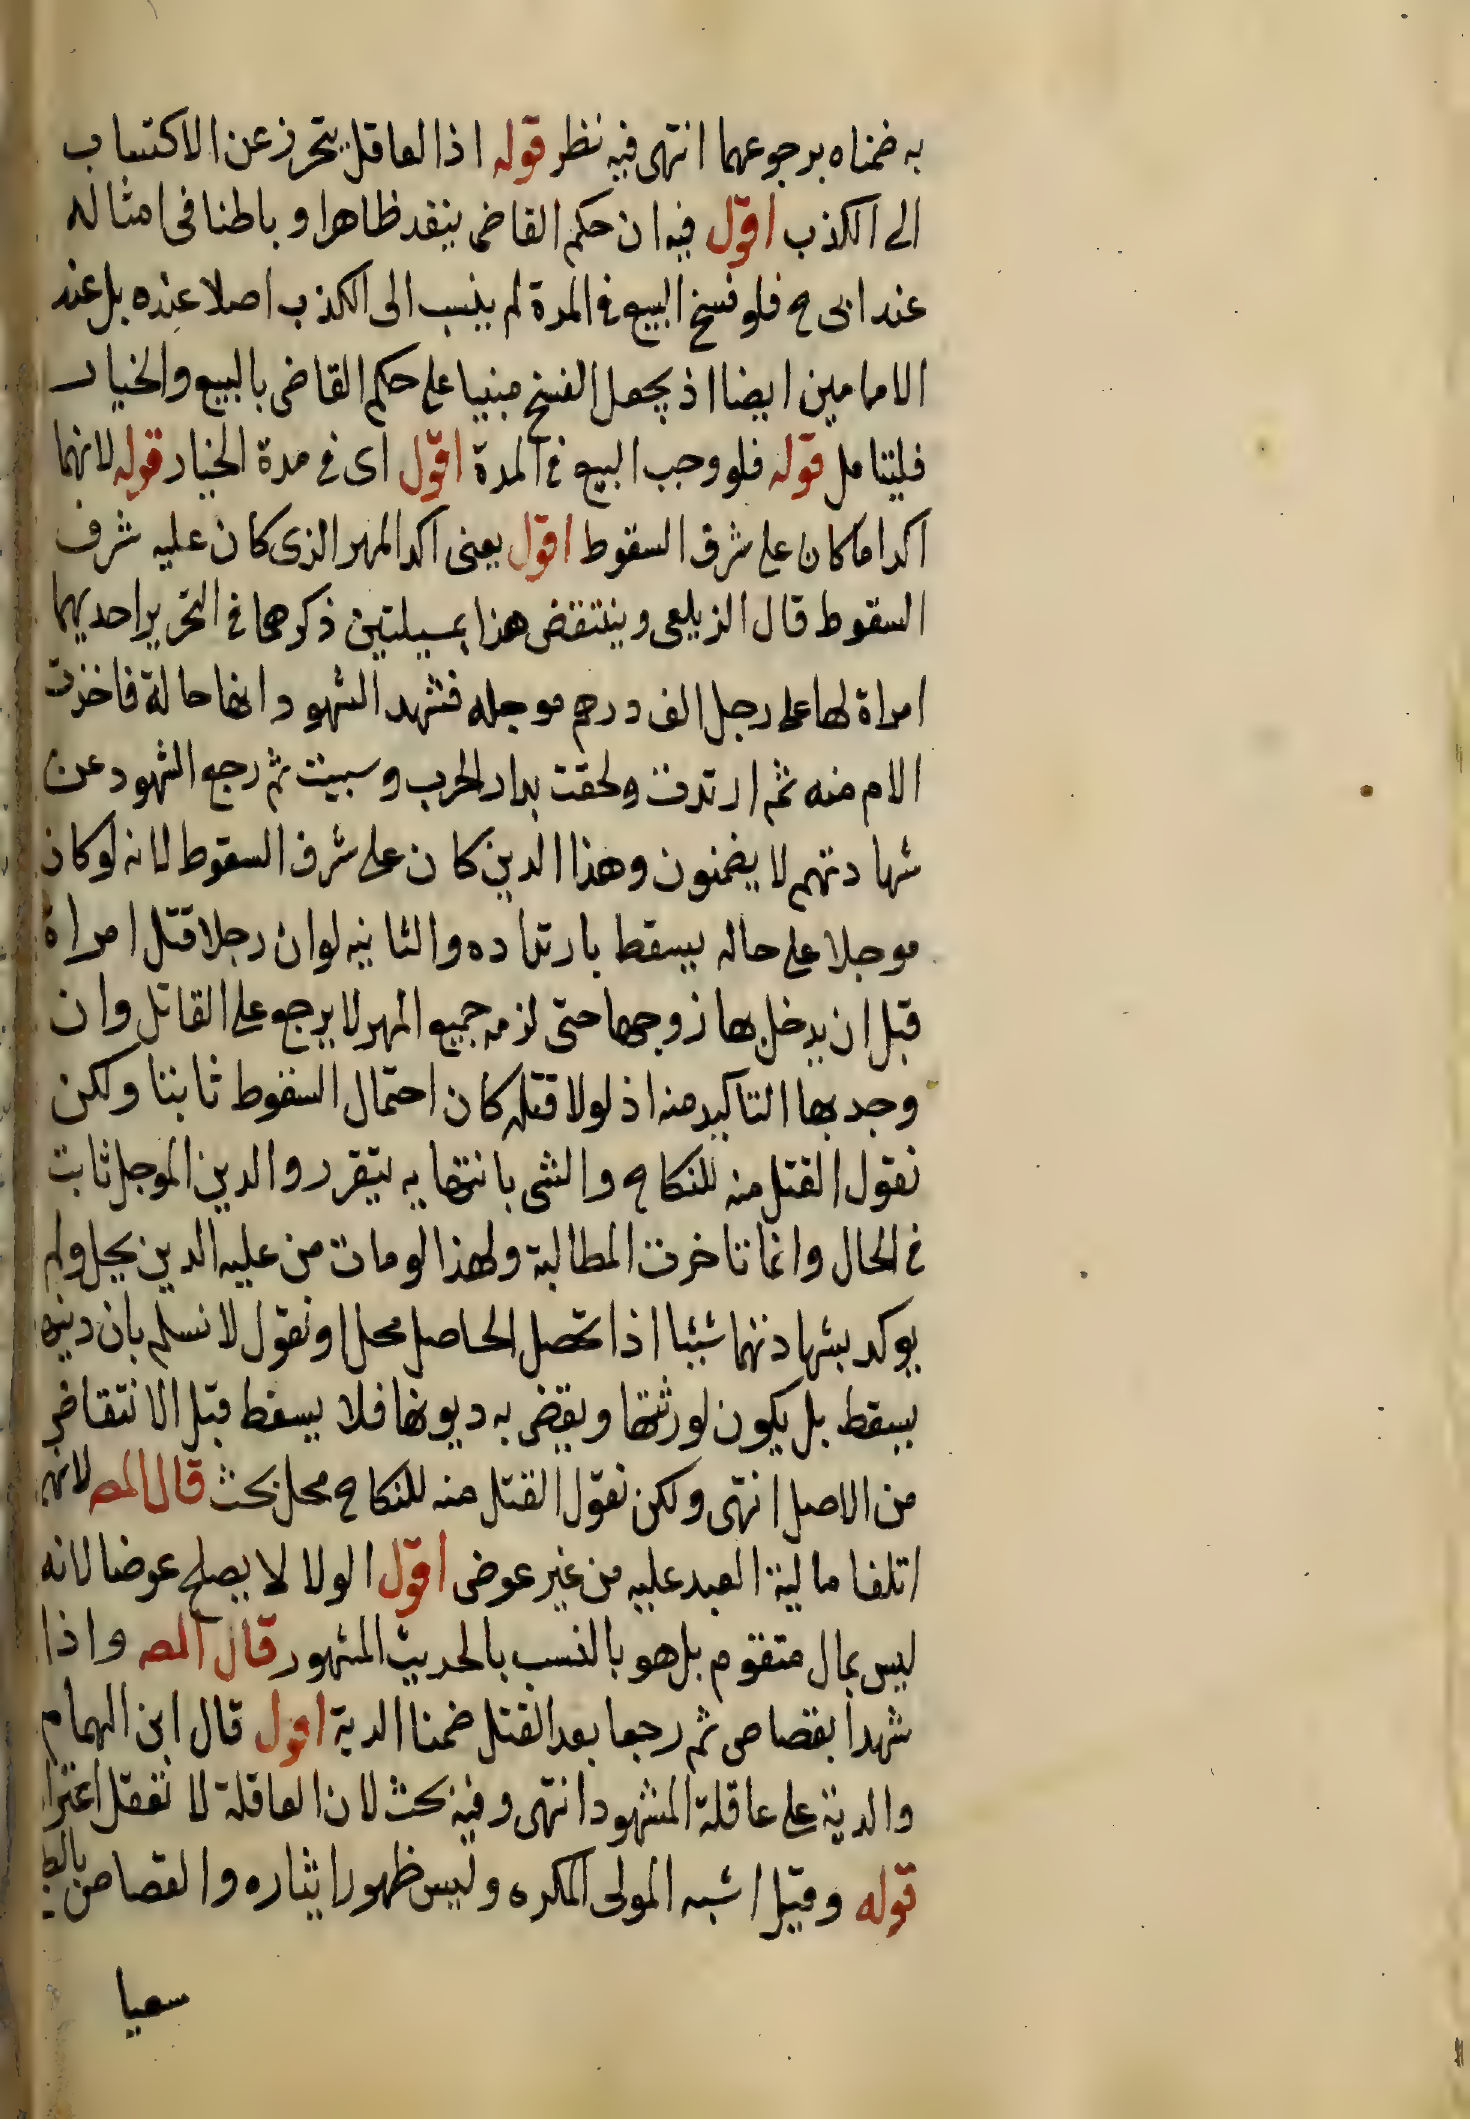 به ضمناه برجوعهما انتهى فيه نظر قوله اذا لعاقل يتحرز عن الاكتساب
الى الكذب اقول فيه ان حكم القاضى ينفد ظاهرا وباطنا فى امثاله
عند ابى ح فلو فسخ البيع فى المدة لم ينسب الى الكذب اصلا عنده بل عند
الامامين ايضا اذ يجعل الفسخ مبنيا على حكم القاضى بالبيع والخيار
فليتامل قوله فلو وجب البيع فى المدة اقول اى فى مدة الخيار قوله لانهما
اكدا ما كان على شرف السقوط اقول يعنى اكد المهر الذى كان عليه شرف
السقوط قال الزيلعى وينتقض هذا بمسيلتين ذكرهما فى التحرير احديهما
امراة لها على رجل الف درهم موجله فشهد الشهود انها حالة فاخذت
الام منه ثم ارتدت ولحقت بدار الحرب وسبيت ثم رجع الشهود عن
شهادتهم لا يضمنون وهذا الدين كان على شرف السقوط لانه لو كان
موجلا على حاله يسقط بارتداده والثانيه لو ان رجلا قتل امراة
قبل ان يدخل بها زوجها حتى لزمه جميع المهر لا يرجع على القاتل وان
وجد بها التاكيد منه اذ لولا قتله كان احتمال السقوط ثابتا ولكن
نقول القتل منه للنكاح والشى بانتهايه يتقرر والدين الموجل ثابت
فى الحال وانما تاخرت المطالبة ولهذا لو مات من عليه الدين يحل ولم
يوكد بشهادتهما شيئا اذا تحصل الحاصل محل او نقول لا نسلم بان دينه
يسقط بل يكون لورثتها ويقضى به ديونها فلا يسقط قبل الانتقاض
من الاصل انتهى ولكن نقول القتل منه للنكاح محل بحث قال المص لانهم
اتلفا مالية العبد عليه من غير عوض اقول الولا لا يصلح عوضا لانه
ليس بمال متقوم بل هو بالنسب بالحديث المشهور قال المص واذا
شهدا بقصاص ثم رجعا بعد القتل ضمنا الدية اقول قال ابن الهمام
والدية على عاقلة المشهود انتهى وفيه بحث لان العاقلة لا تعقل اعترا
قوله وقيل اشبه المولى المكره وليس ظهورا يثاره والقصاص بالط
سعيا